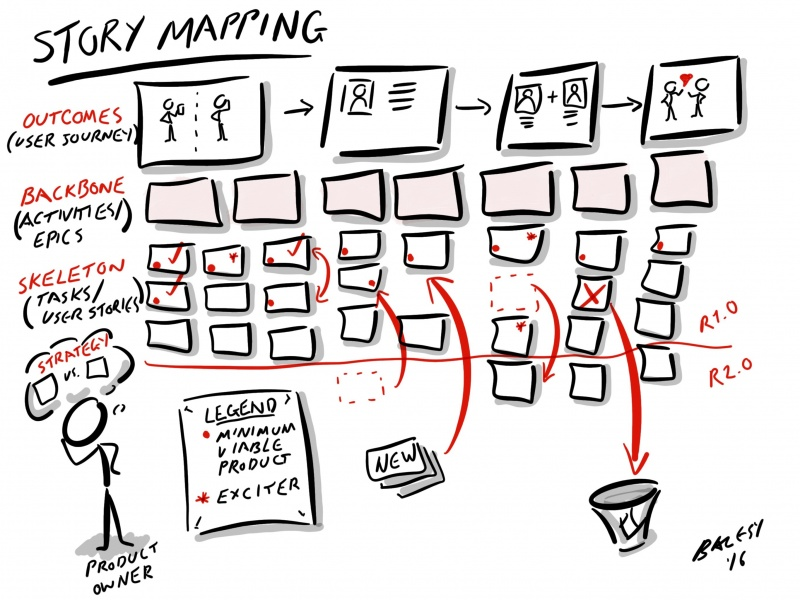 STORY MAPPING
OUTCOMES
(USER JOURNEY)
+
BACKBONE
(ACTIVITIES/
EPICS
SKELETON
(TASKS/
USER STORIES)
R1.0
R2.0
STRATEGY
VS.
LEGEND
• MINIMUM
VIABLE
PRODUCT
* EXCITER
NEW
PRODUCT
OWNER
BALESI
'16